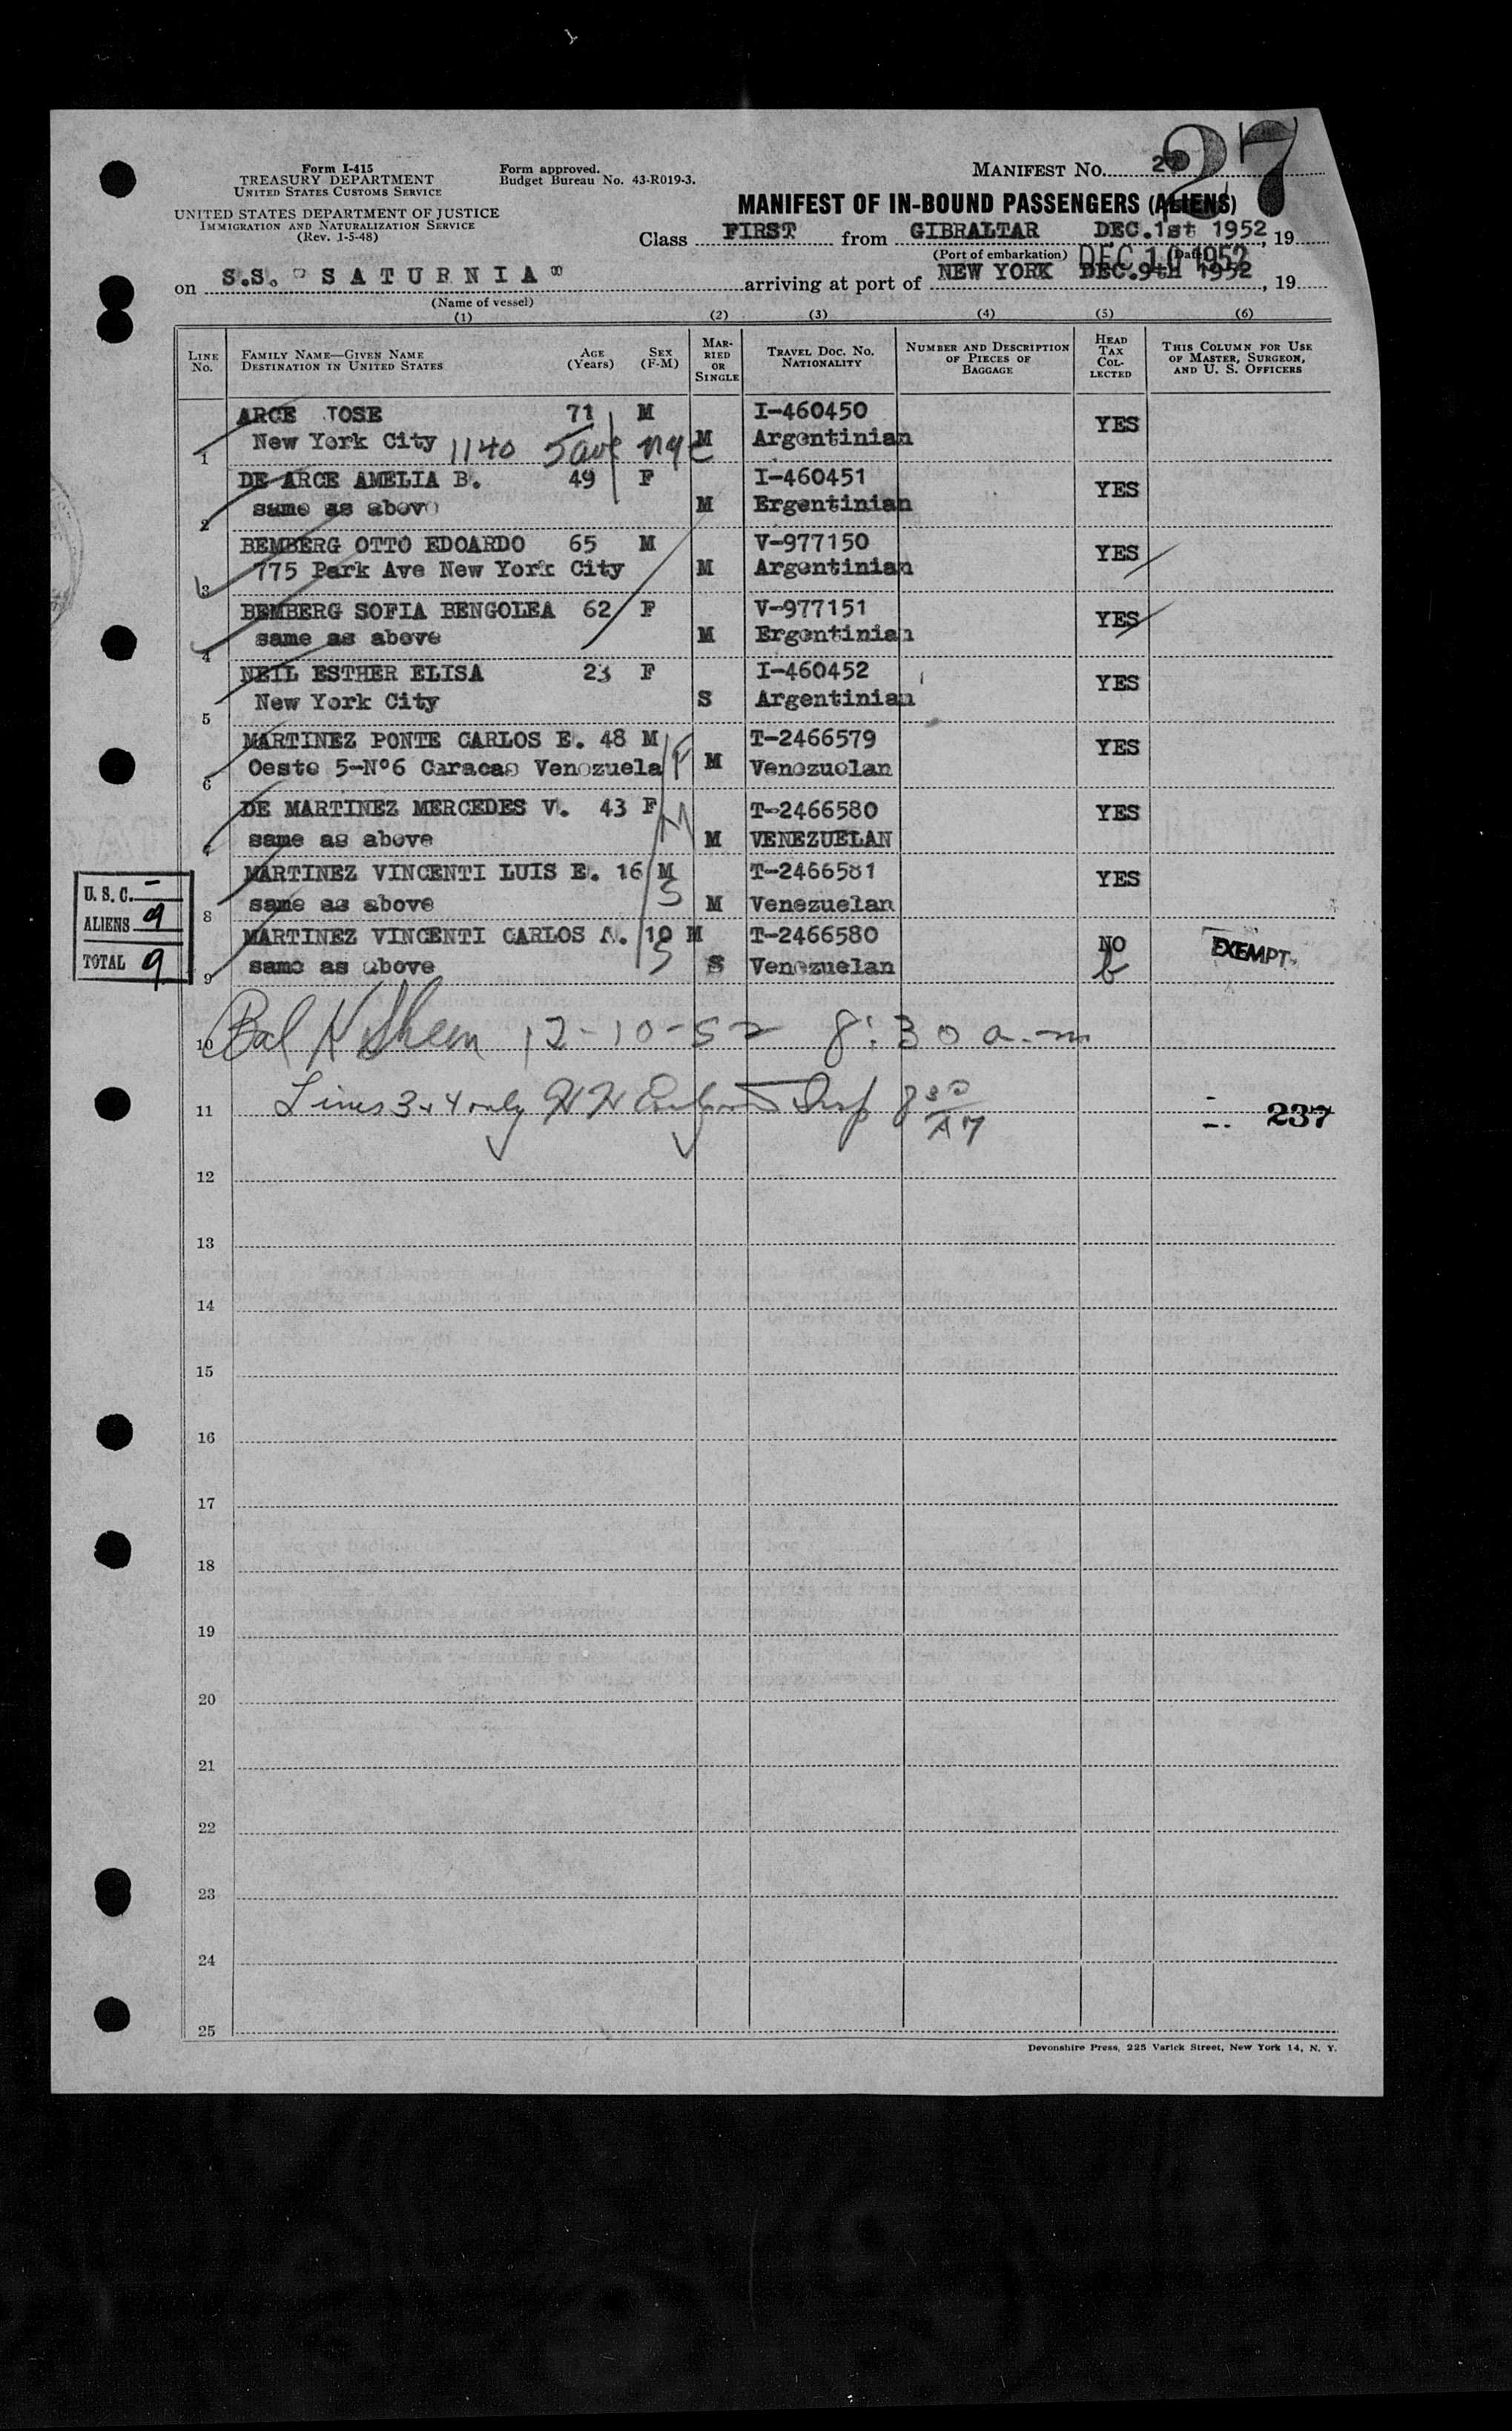 27
Form I-415
TREASURY DEPARTMENT
UNITED STATES CUSTOMS SERVICE
Form approved.
Budget Bureau No. 43-R019-3.
MANIFEST NO. 27
UNITED STATES DEPARTMENT OF JUSTICE
IMMIGRATION AND NATURALIZATION SERVICE
(Rev. 1-5-48)
MANIFEST OF IN-BOUND PASSENGERS (ALIENS)
Class FIRST from GIBRALTAR DEC.1st 1952, 19
(Port of embarkation) (Date)
DEC 10 1952
on S.S. "S A T U R N I A" arriving at port of NEW YORK DEC.9th 1952, 19
(Name of vessel)
(1) (2) (3) (4) (5) (6)
LINE No. FAMILY NAME—GIVEN NAME DESTINATION IN UNITED STATES AGE (Years) SEX (F-M) MARRIED OR SINGLE TRAVEL DOC. NO. NATIONALITY NUMBER AND DESCRIPTION OF PIECES OF BAGGAGE HEAD TAX COLLECTED THIS COLUMN FOR USE OF MASTER, SURGEON, AND U. S. OFFICERS
ARCE JOSE 71 M I-460450 YES
1 New York City 1140 5 ave nyc M Argentinian
DE ARCE AMELIA B. 49 F I-460451 YES
2 same as above M Ergentinian
BEMBERG OTTO EDOARDO 65 M V-977150 YES
3 775 Park Ave New York City M Argentinian
BEMBERG SOFIA BENGOLEA 62 F V-977151 YES
4 same as above M Ergentinian
NEIL ESTHER ELISA 23 F I-460452 YES
5 New York City S Argentinian
MARTINEZ PONTE CARLOS E. 48 M T-2466579 YES
6 Oeste 5-Nº6 Caracas Venezuela M Venezuelan
DE MARTINEZ MERCEDES V. 43 F M T-2466580 YES
7 same as above M VENEZUELAN
MARTINEZ VINCENTI LUIS E. 16 M S T-2466581 YES
8 same as above M Venezuelan
MARTINEZ VINCENTI CARLOS A. 10 M S T-2466580 NO EXEMPT
9 same as above S Venezuelan
U. S. C. -
ALIENS 9
TOTAL 9
10 Bal 12-10-52 8:30 a.m
11 Lines 3 & 4 only Insp 8 30 AM 237
12
13
14
15
16
17
18
19
20
21
22
23
24
25
Devonshire Press, 225 Varick Street, New York 14, N. Y.